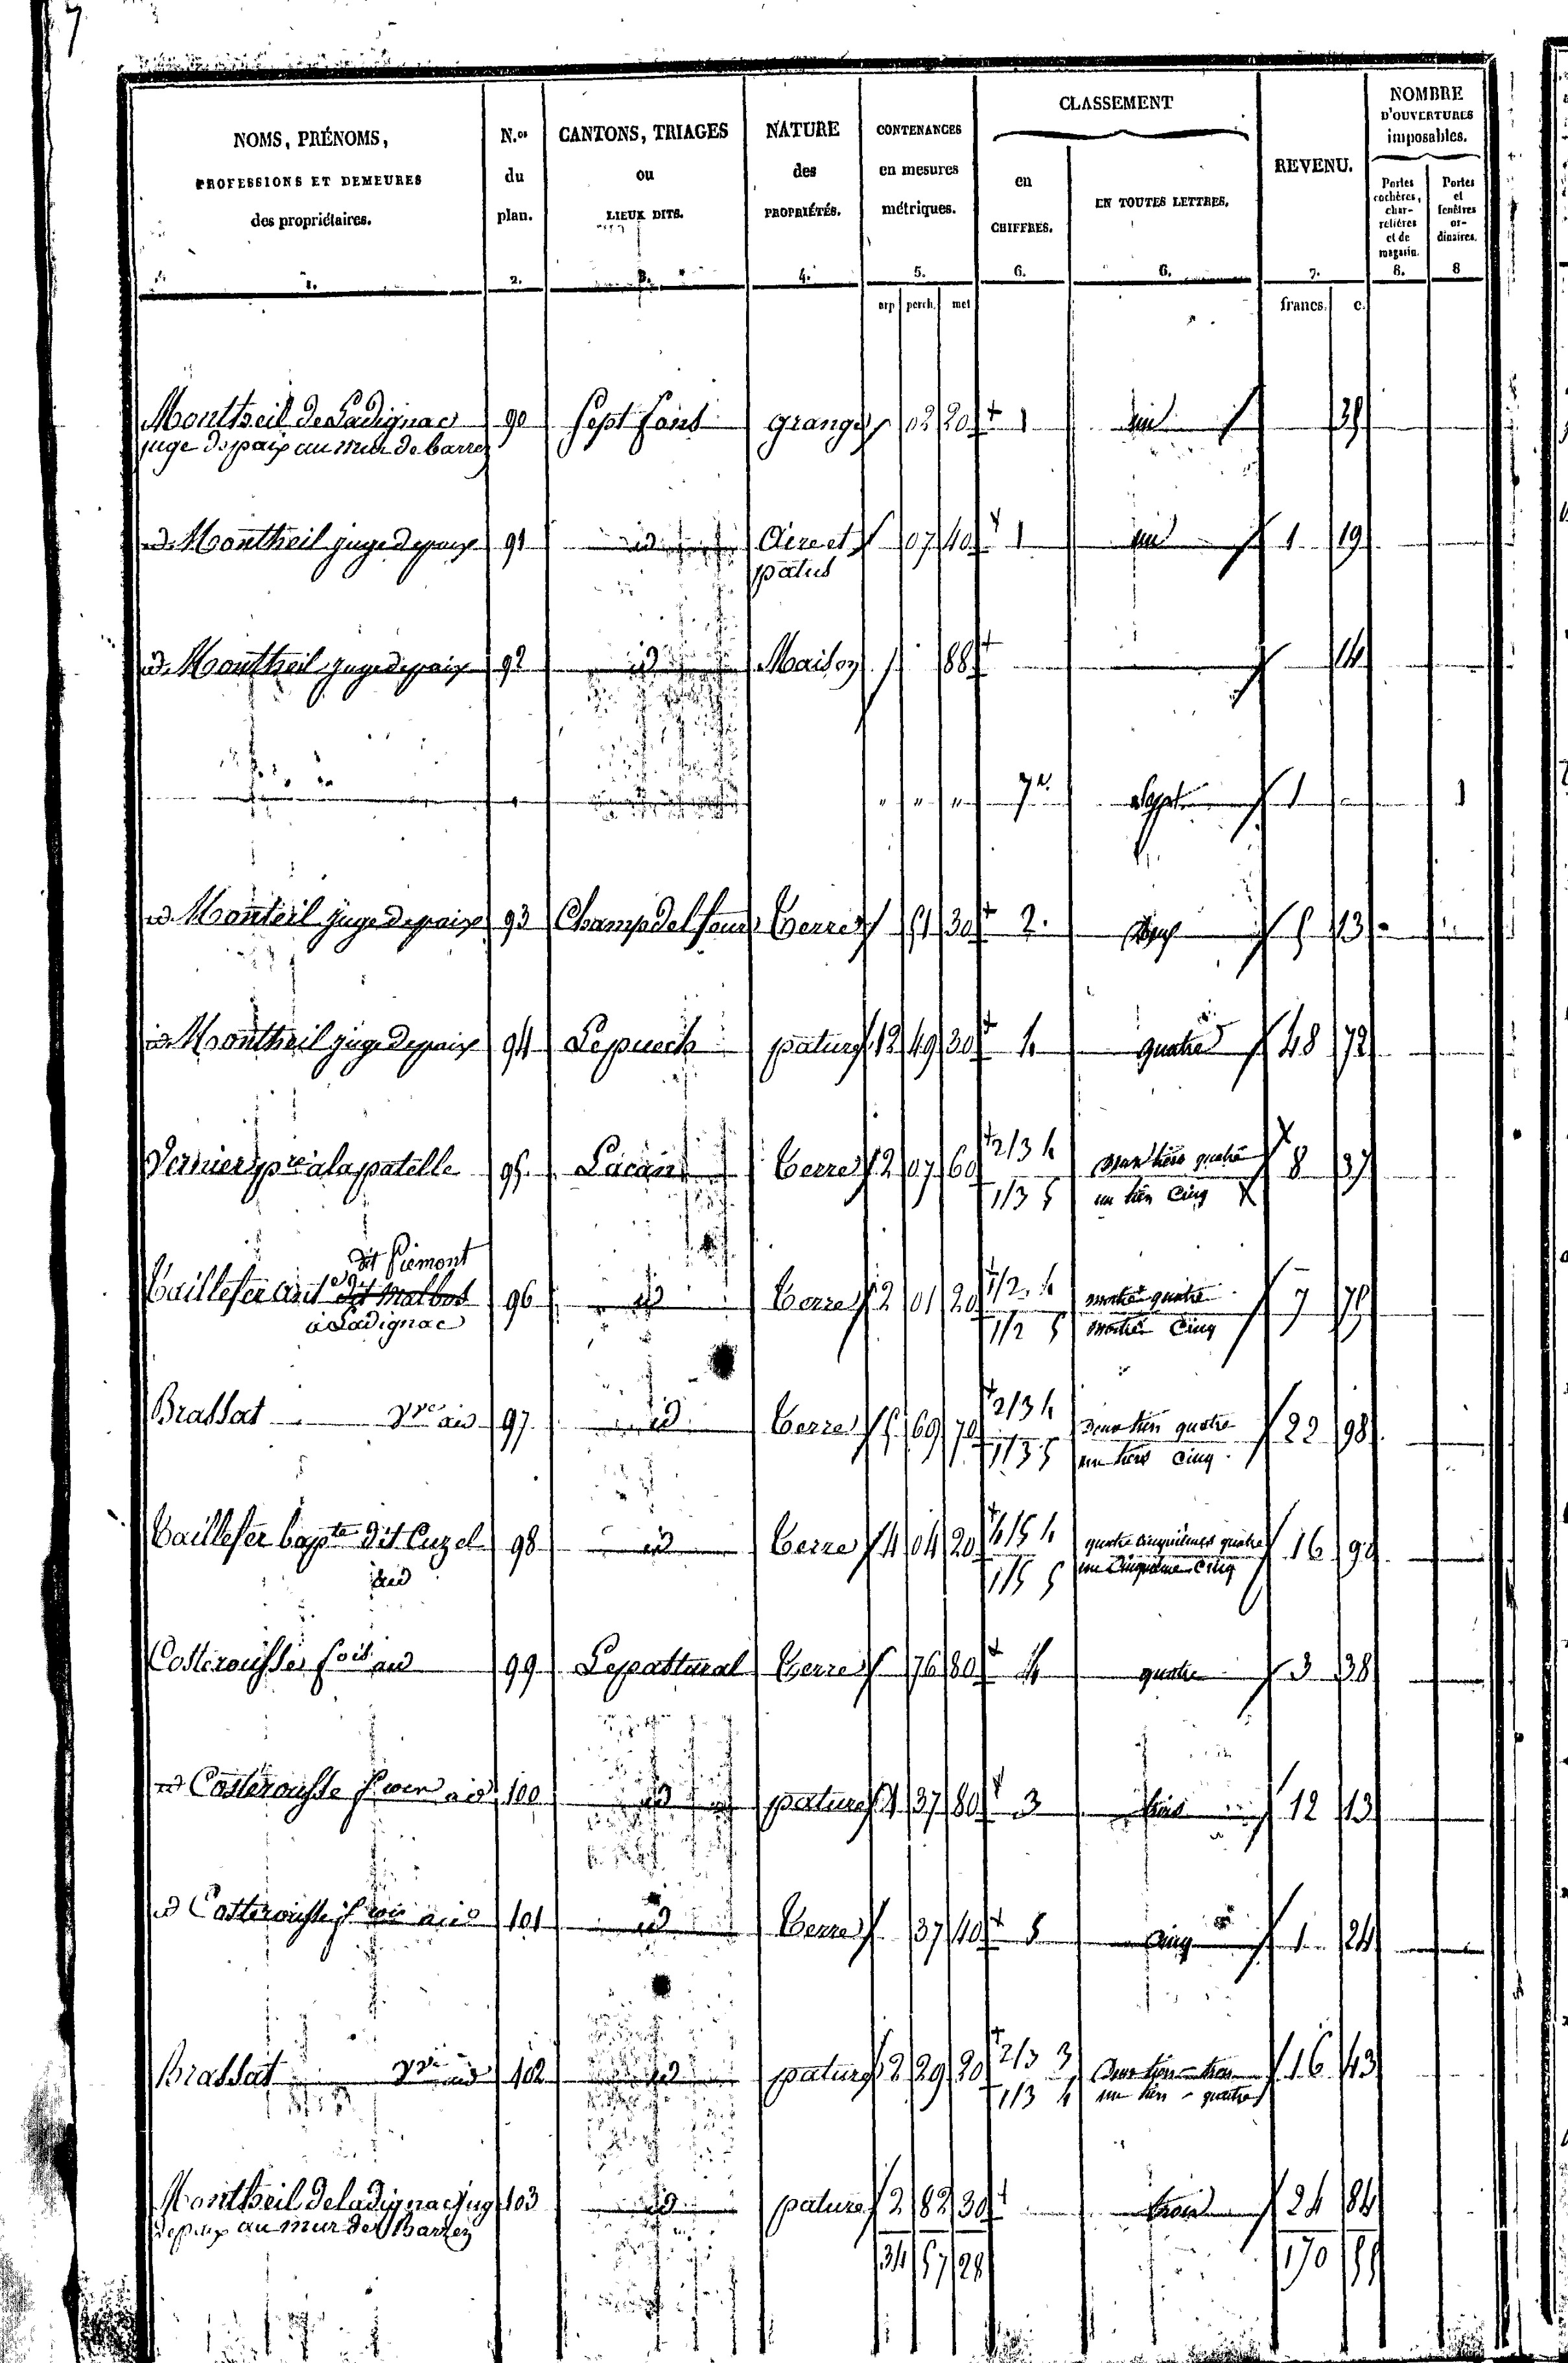 7
NOMS, PRÉNOMS, PROFESSIONS ET DEMEURES des propriétaires. 1.
N.os du plan. 2.
CANTONS, TRIAGES ou LIEUX DITS. 3.
NATURE des PROPRIÉTÉS. 4.
CONTENANCES en mesures métriques. 5.
CLASSEMENT
en CHIFFRES. 6.
EN TOUTES LETTRES. 6.
REVENU. 7.
NOMBRE D'OUVERTURES imposables.
Portes cochères, charretières et de magasin. 8.
Portes et fenêtres ordinaires. 8
arp perch. met francs. c.
Montheil de Ladignac 90 Sept fons grange 02 20 1 un 35
juge de paix au mur de barrez
id Montheil juge de paix 91 id Aire et 07 40 1 un 1 19
patus
id Montheil juge de paix 92 id Maison 88 14
" " " 7e sept 1 1
id Monteil juge de paix 93 Champ del four Terre 51 30 2 deux 5 13
id Montheil juge de paix 94 Lepuech pature 12 49 30 4 quatre 48 72
Vernier pre alapatelle 95 Lacan Terre 2 07 60 2/3 4 deux tiers quatre 8 37
1/3 5 un tiers cinq
dit Piemont
Taillefer ant dit Malbos 96 id Terre 2 01 20 1/2 4 moitié quatre 7 75
a Ladignac 1/2 5 moitié cinq
Brassat vve aid 97 id Terre 5 69 70 2/3 4 deux tiers quatre 22 98
1/3 5 un tiers cinq
Taillefer bapte dit Cuzel 98 id Terre 4 04 20 4/5 4 quatre cinquièmes quatre 16 90
aid 1/5 5 un cinquième cinq
Costerousse fois aid 99 Lepastural Terre 76 80 4 quatre 3 38
id Costerousse fcois aid 100 id pature 1 37 80 3 trois 12 13
id Costerousse fcois aid 101 id Terre 37 40 5 cinq 1 24
Brassat vve aid 102 id pature 2 29 20 2/3 3 deux tiers trois 16 43
1/3 4 un tiers quatre
Montheil deladignac jug 103 id pature 2 82 30 trois 24 84
depaix au mur de Barrez
34 57 28 170 55